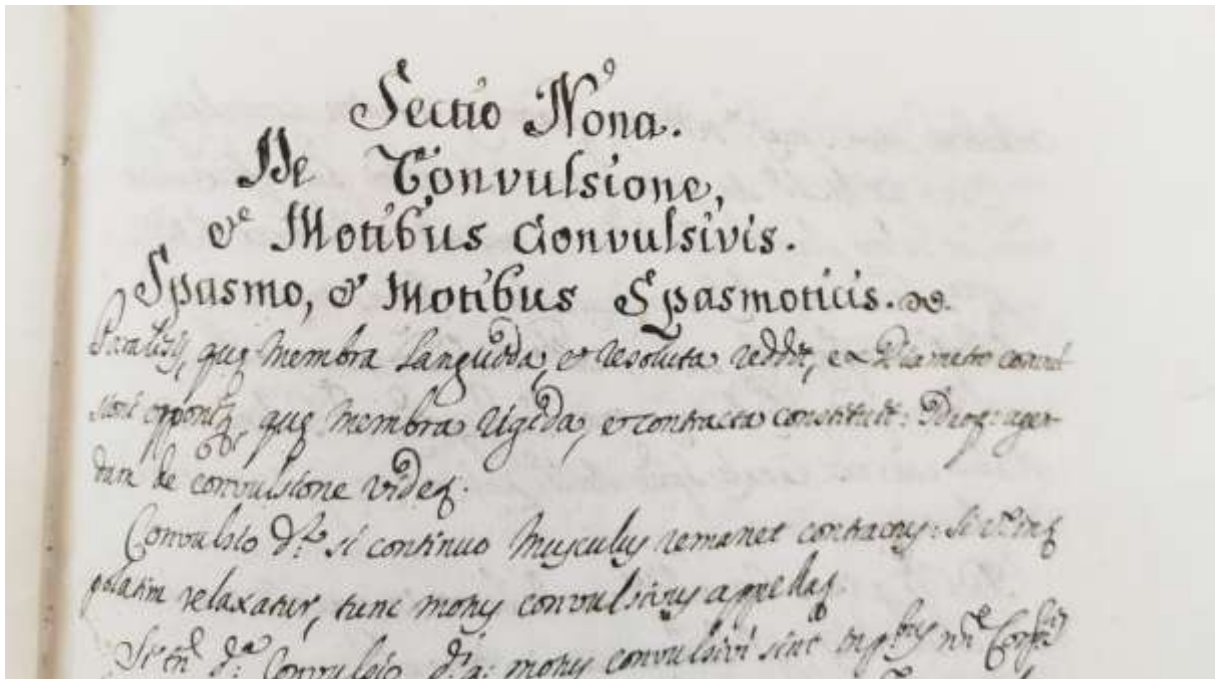 Sectio Nona.
De Convulsione,
& Motibus Convulsivis.
Spasmo, & Motibus Spasmoticis.
Paralisis, quę membra languida, et resoluta reddit, ex Diametro convul
sioni quę membra rigida, et contracta constituit: agen
dum de convulsione
Convulsio dr̃ si continuo Musculus remanet contractus: si
polatim relaxatur, tunc motus convulsivus
Convulsio motus convulsivi sint